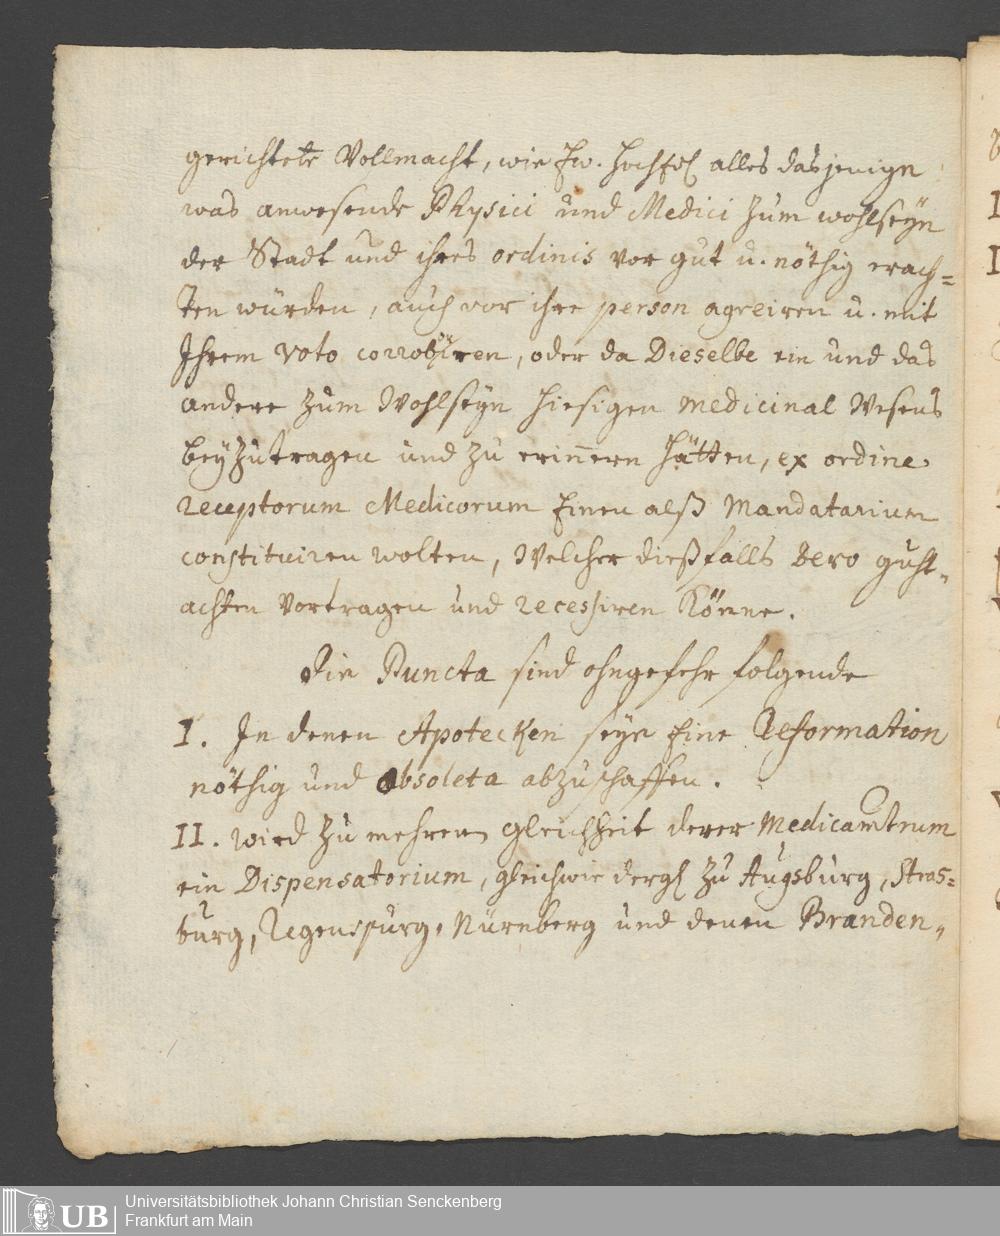 gerichtete Vollmacht, wie Ew. Hochfl alles dasjenige
was anwesende Physici und Medici zum wohlseyn
der Stadt und ihres ordinis vor gut u. nöthig erach=
ten würden, auch vor ihre person agreiren u. mit
Ihrem voto corroboriren, oder da Dieselbe ein und das
andere zum Wohlseyn hiesigen medicinal Wesens
beyzutragen und zu erinnern hätten, ex ordine
receptorum Medicorum Einen alß Mandatarium
constituiren wolten, Welcher dießfalls Dero guht-
achten Vortragen und recessiren Könne.
Die Puncta sind ohngefehr folgende
I. In denen Apotecken seye Eine Reformation
nöthig und absoleta abzuschaffen.
II. wird zu mehrern gleichheit derer Medicamtrum
ein Dispensatorium, gleichwie dergl zu Augsburg, Stras=
burg, Regenspurg, Nürnberg und denen Branden-
UB
Universitätsbibliothek Johann Christian Senckenberg
Frankfurt am Main